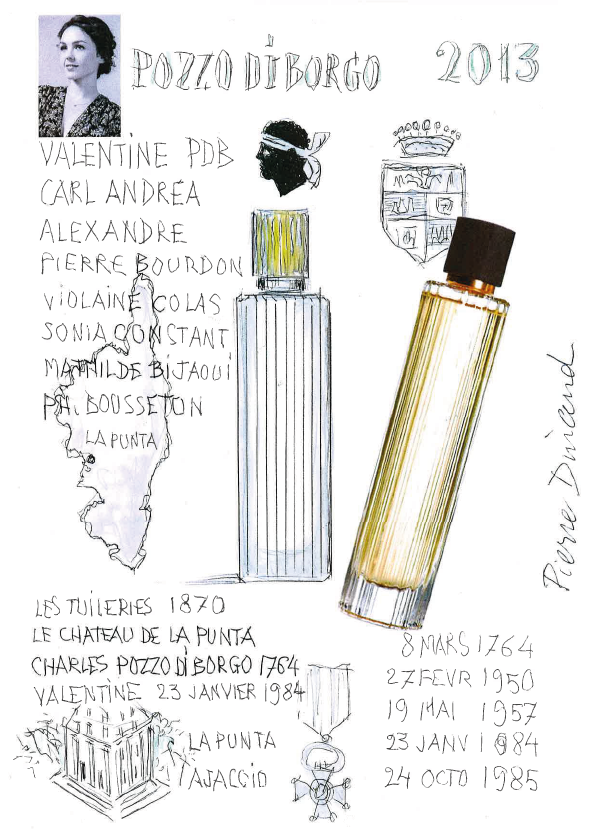 POZZO DI BORGO 2013
VALENTINE PDB
CARL ANDREA
ALEXANDRE
PIERRE BOURDON
VIOLAINE COLAS
SONIA CONSTANT
MATHILDE BIJAOUI
PH. BOUSSETON
LA PUNTA
Pierre Dinand
LES TUILERIES 1870
LE CHATEAU DE LA PUNTA
CHARLES POZZO DI BORGO 1764
VALENTINE 23 JANVIER 1984
8 MARS 1764
27 FEVR 1950
19 MAI 1957
23 JANV 1984
24 OCTO 1985
LA PUNTA
AJACCIO